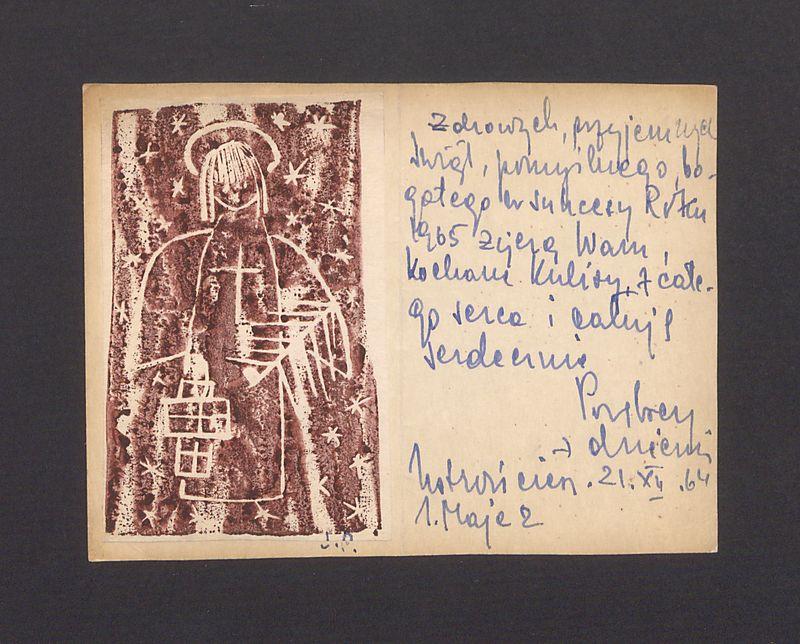 Zdrowych, przyjemnych
Świąt, pomyślnego, bo-
gatego w sukcesy Roku
1965 życzą Wam,
Kochani Kulisy, z całe-
go serca i całują
serdecznie
Przybosy
z dziećmi
21.XII.64
1. Maja 2